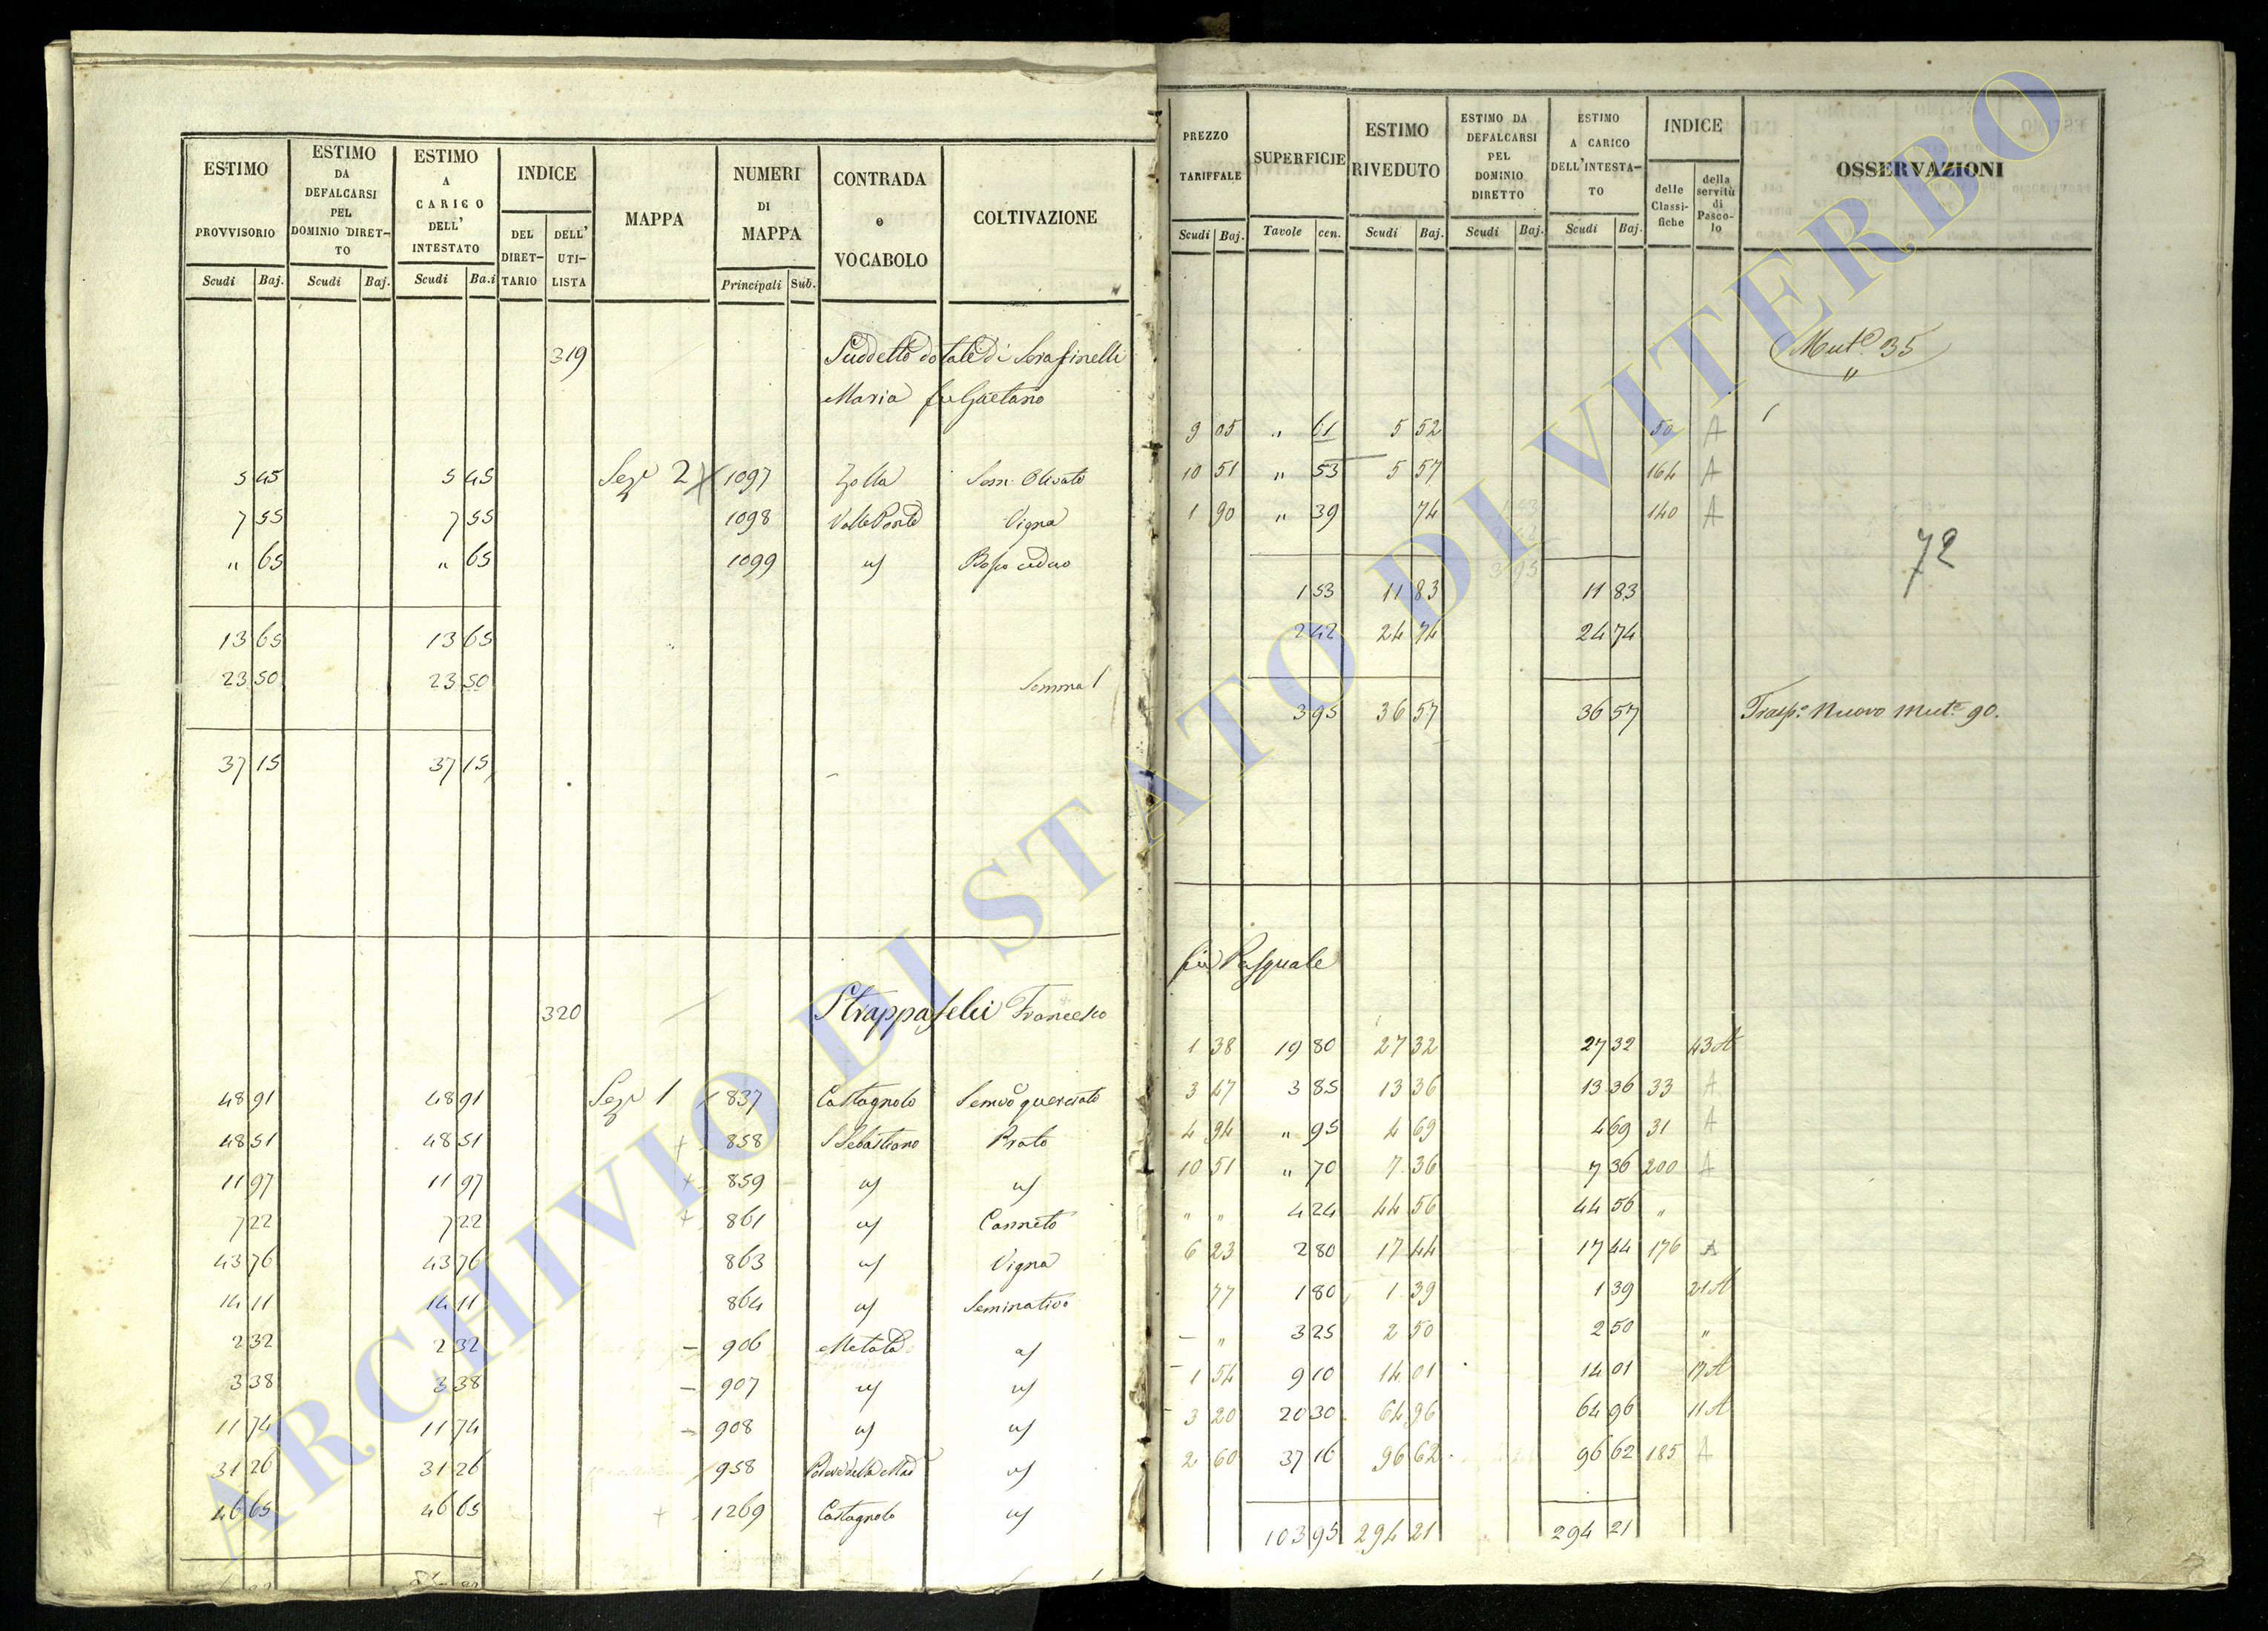 ESTIMO PROVVISORIO
ESTIMO DA DEFALCARSI PEL DOMINIO DIRET-TO
ESTIMO A CARICO DELL' INTESTATO
INDICE
DEL DIRET-TARIO
DELL' UTI-LISTA
MAPPA
NUMERI DI MAPPA
CONTRADA e VOCABOLO
COLTIVAZIONE
Scudi Baj. Scudi Baj. Scudi Ba.i Principali Sub.
319 Suddetto dotale di Serafinelli
Maria fu Gaetano
5 45 5 45 Sezⁿ 2 1097 Zolla Sem. Olivato
7 55 7 55 1098 Valle Ponte Vigna
" 65 " 65 1099 " Bosco ceduo
13 65 13 65
23 50 23 50 Somma 1
37 15 37 15
320 Strappafelci Francesco
48 91 48 91 Sezⁿ 1 837 Castagnolo Semvo querciato
48 51 48 51 + 858 S Sebastiano Prato
11 97 11 97 + 859 " "
7 22 7 22 + 861 " Canneto
43 76 43 76 863 " Vigna
14 11 14 11 864 " Seminativo
2 32 2 32 - 906 Metata "
3 38 3 38 - 907 " "
11 74 11 74 - 908 " "
31 26 31 26 958 "
46 65 46 65 + 1269 Castagnolo "
PREZZO TARIFFALE
SUPERFICIE
ESTIMO RIVEDUTO
ESTIMO DA DEFALCARSI PEL DOMINIO DIRETTO
ESTIMO A CARICO DELL'INTESTA-TO
INDICE
delle Classi-fiche
della servitù di Pasco-lo
OSSERVAZIONI
Scudi Baj. Tavole cen. Scudi Baj. Scudi Baj. Scudi Baj.
Mutᵉ 35
"
9 05 " 61 5 52 50 A
10 51 " 53 5 57 164 A
1 90 " 39 74 140 A
72
1 53 11 83 11 83
2 42 24 74 24 74
3 95 36 57 36 57 Trasp.º Nuovo Mutᵉ 90.
fu Pasquale
1 38 19 80 27 32 27 32 43 A
3 47 3 85 13 36 13 36 33 A
4 94 " 95 4 69 4 69 31 A
10 51 " 70 7 36 7 36 200 A
" " 4 24 44 56 44 56 "
6 23 2 80 17 44 17 44 176 A
77 1 80 1 39 1 39 21 A
- " 3 25 2 50 2 50 "
1 54 9 10 14 01 14 01 17 A
3 20 20 30 64 96 64 96 11 A
2 60 37 16 96 62 96 62 185 A
103 95 294 21 294 21
ARCHIVIO DI STATO DI VITERBO